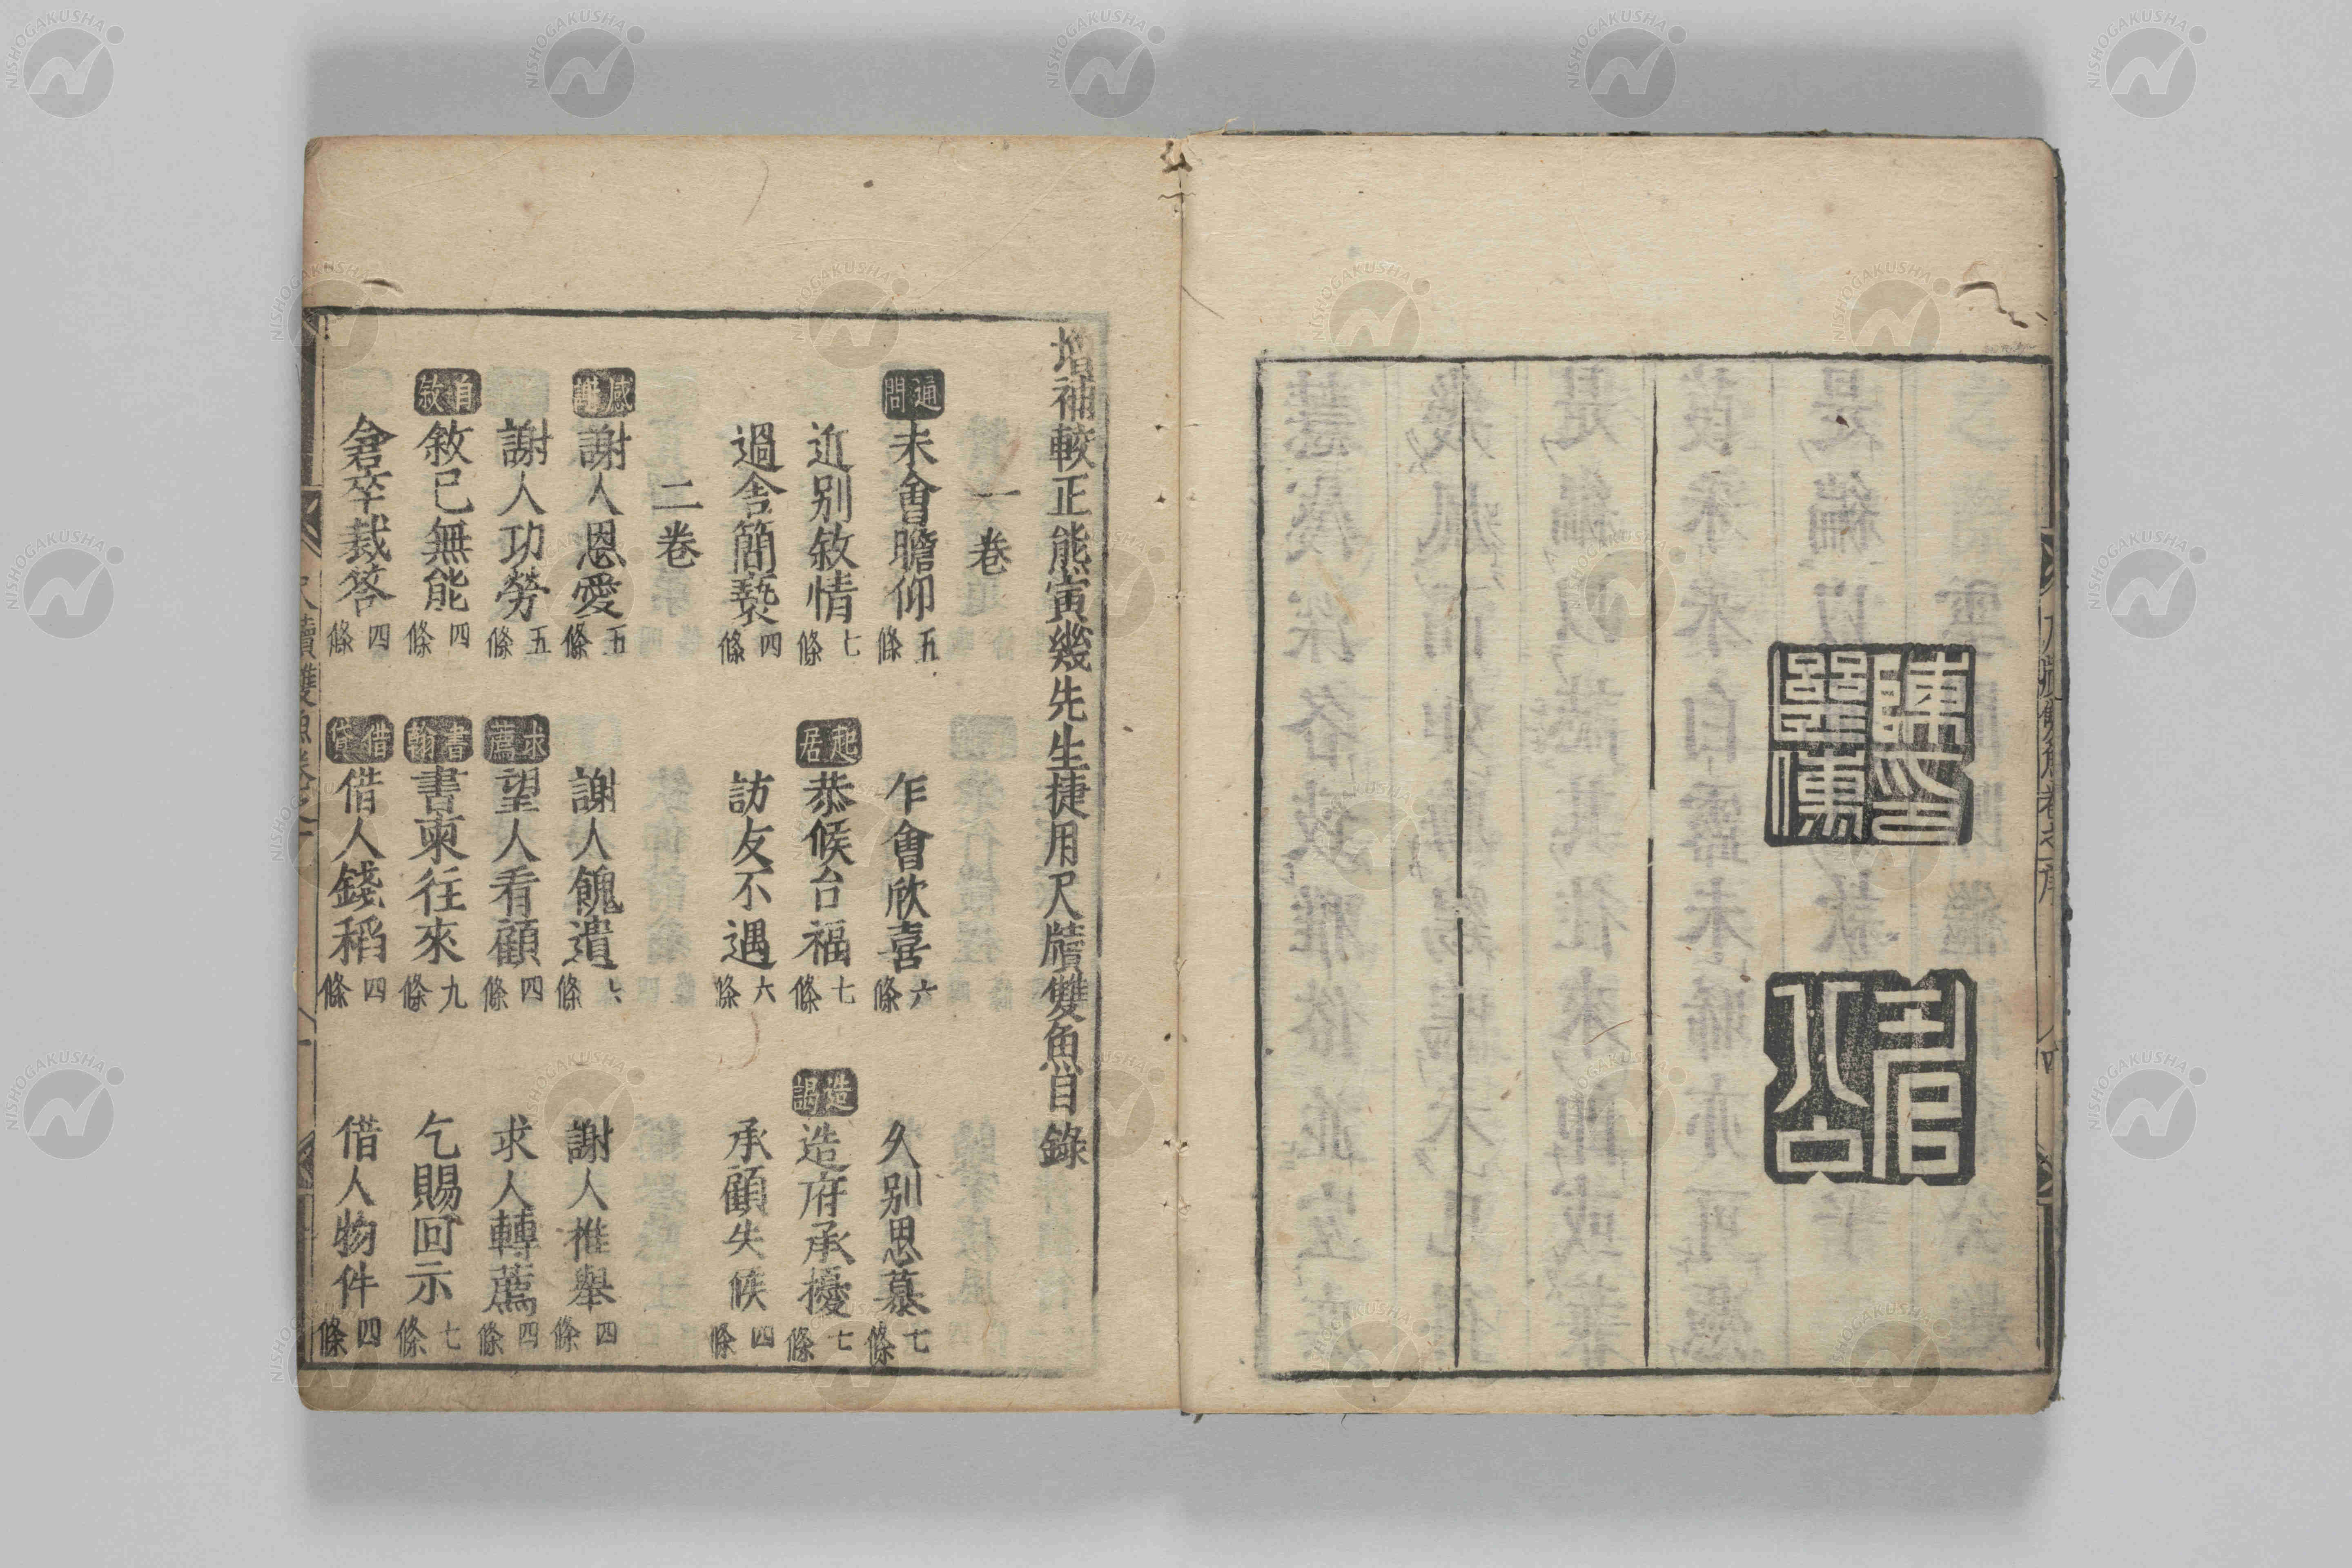 增補較正熊寅幾先生捷用尺牘雙魚目錄
一卷
通問 未會瞻仰 五條 乍會欣喜 六條 久別思慕 七條
近別敘情 七條 起居 恭候台福 七條 造謁 造府承擾 七條
過舍簡褻 四條 訪友不遇 六條 承顧失候 四條
二卷
感謝 謝人恩愛 五條 謝人餽遺 六條 謝人推舉 四條
謝人功勞 五條 求薦 望人看顧 四條 求人轉薦 四條
自敘 敘己無能 四條 書翰 書柬往來 九條 乞賜回示 七條
倉卒裁答 四條 借貸 借人錢稻 四條 借人物件 四條
NISHOGAKUSHA